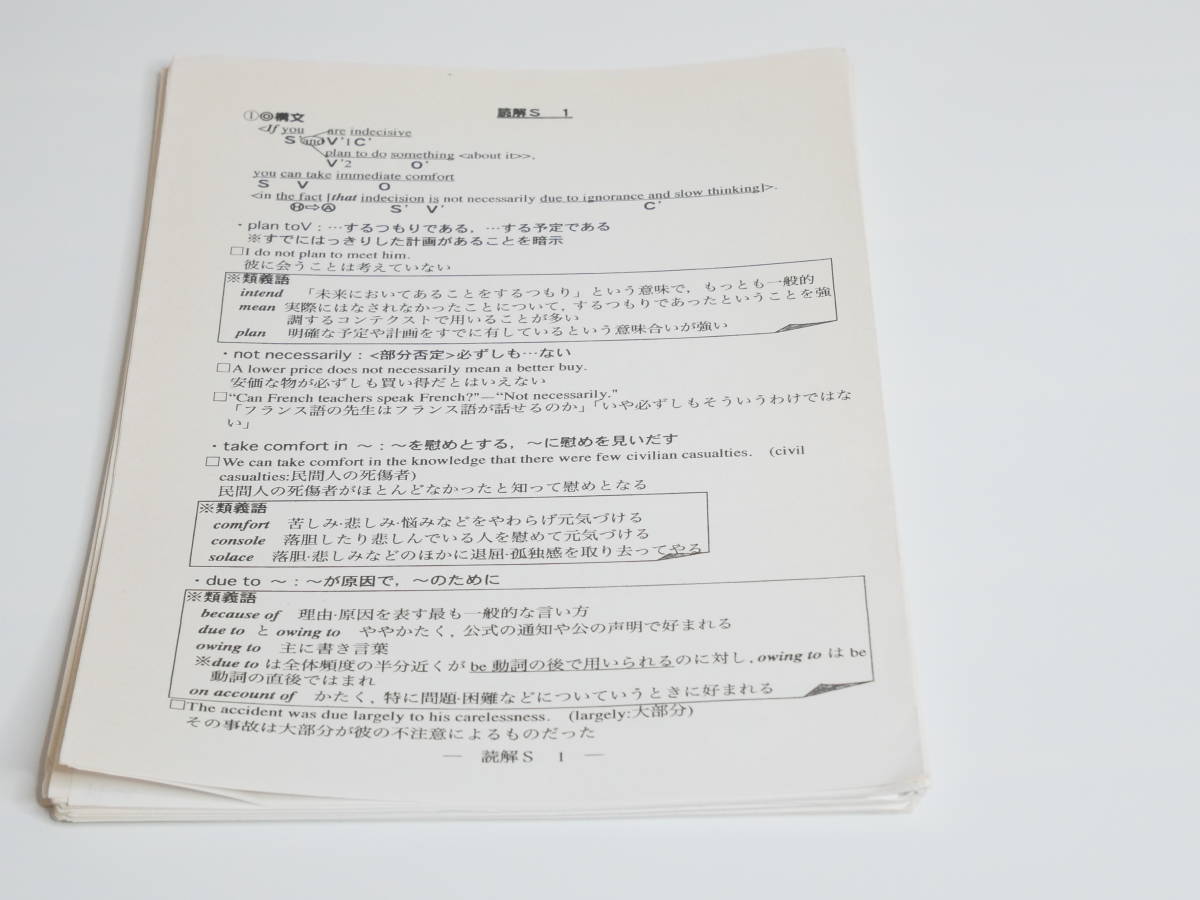 読解S 1
①◎構文
<If you are indecisive
S and V'1 C'
plan to do something <about it>>,
V'2 O'
you can take immediate comfort
S V O
<in the fact [that indecision is not necessarily due to ignorance and slow thinking]>.
Ⓗ⇨Ⓐ S' V' C'
・plan toV：…するつもりである，…する予定である
※すでにはっきりした計画があることを暗示
□I do not plan to meet him.
彼に会うことは考えていない
※類義語
intend 「未来においてあることをするつもり」という意味で，もっとも一般的
mean 実際にはなされなかったことについて，するつもりであったということを強
調するコンテクストで用いることが多い
plan 明確な予定や計画をすでに有しているという意味合いが強い
・not necessarily：<部分否定>必ずしも…ない
□A lower price does not necessarily mean a better buy.
安価な物が必ずしも買い得だとはいえない
□“Can French teachers speak French?"—“Not necessarily."
「フランス語の先生はフランス語が話せるのか」「いや必ずしもそういうわけではな
い」
・take comfort in ～：～を慰めとする，～に慰めを見いだす
□We can take comfort in the knowledge that there were few civilian casualties. (civil
casualties:民間人の死傷者)
民間人の死傷者がほとんどなかったと知って慰めとなる
※類義語
comfort 苦しみ·悲しみ·悩みなどをやわらげ元気づける
console 落胆したり悲しんでいる人を慰めて元気づける
solace 落胆·悲しみなどのほかに退屈·孤独感を取り去ってやる
・due to ～：～が原因で，～のために
※類義語
because of 理由·原因を表す最も一般的な言い方
due to と owing to ややかたく，公式の通知や公の声明で好まれる
owing to 主に書き言葉
※due to は全体頻度の半分近くが be 動詞の後で用いられるのに対し，owing to は be
動詞の直後ではまれ
on account of かたく，特に問題·困難などについていうときに好まれる
□The accident was due largely to his carelessness. (largely:大部分)
その事故は大部分が彼の不注意によるものだった
— 読解S 1 —